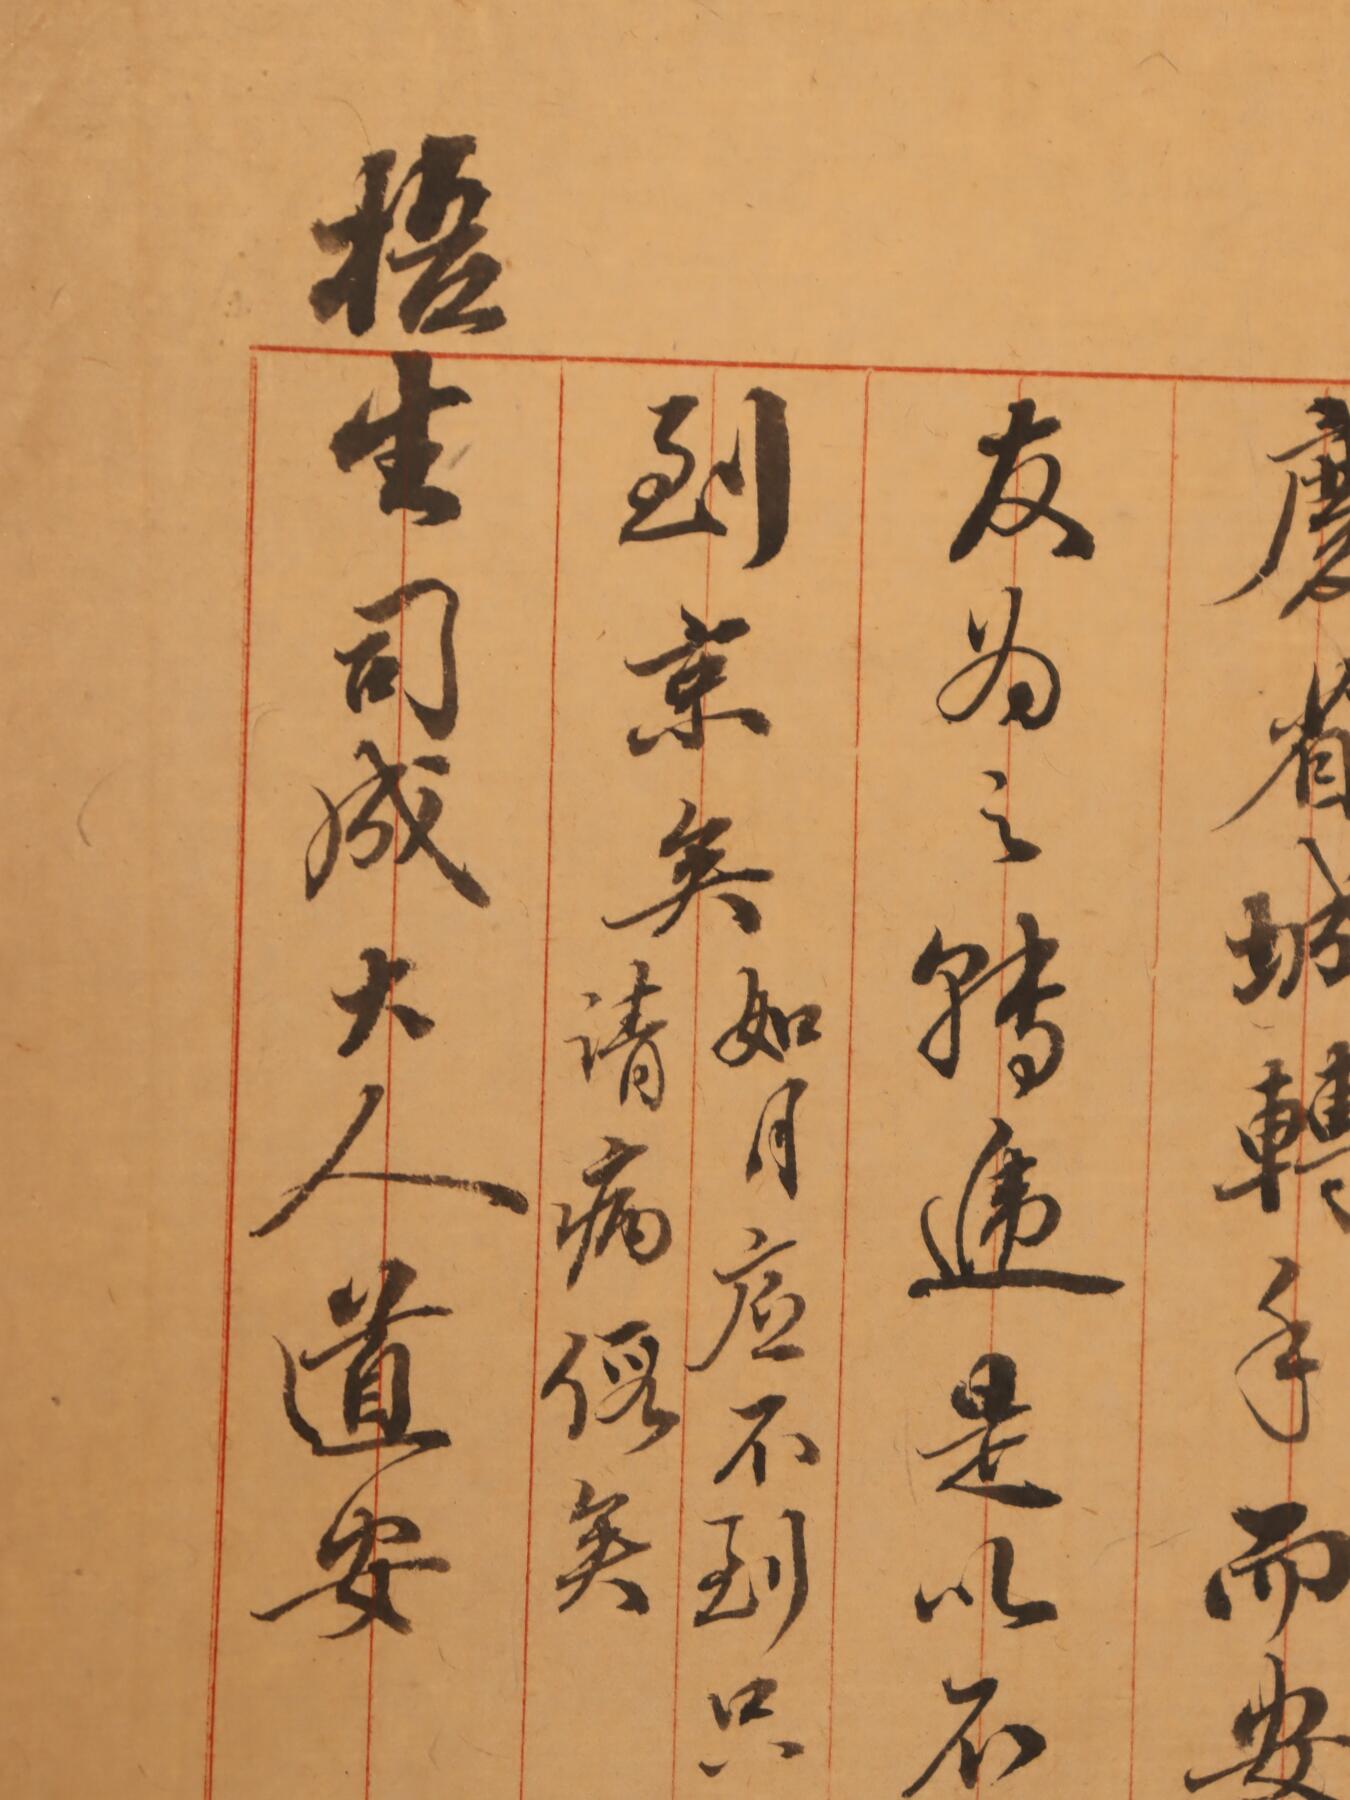 慶省城轉手而安
友為之轉遞是以不
到京矣
如月底不到只
請病假矣
梧生司成大人道安